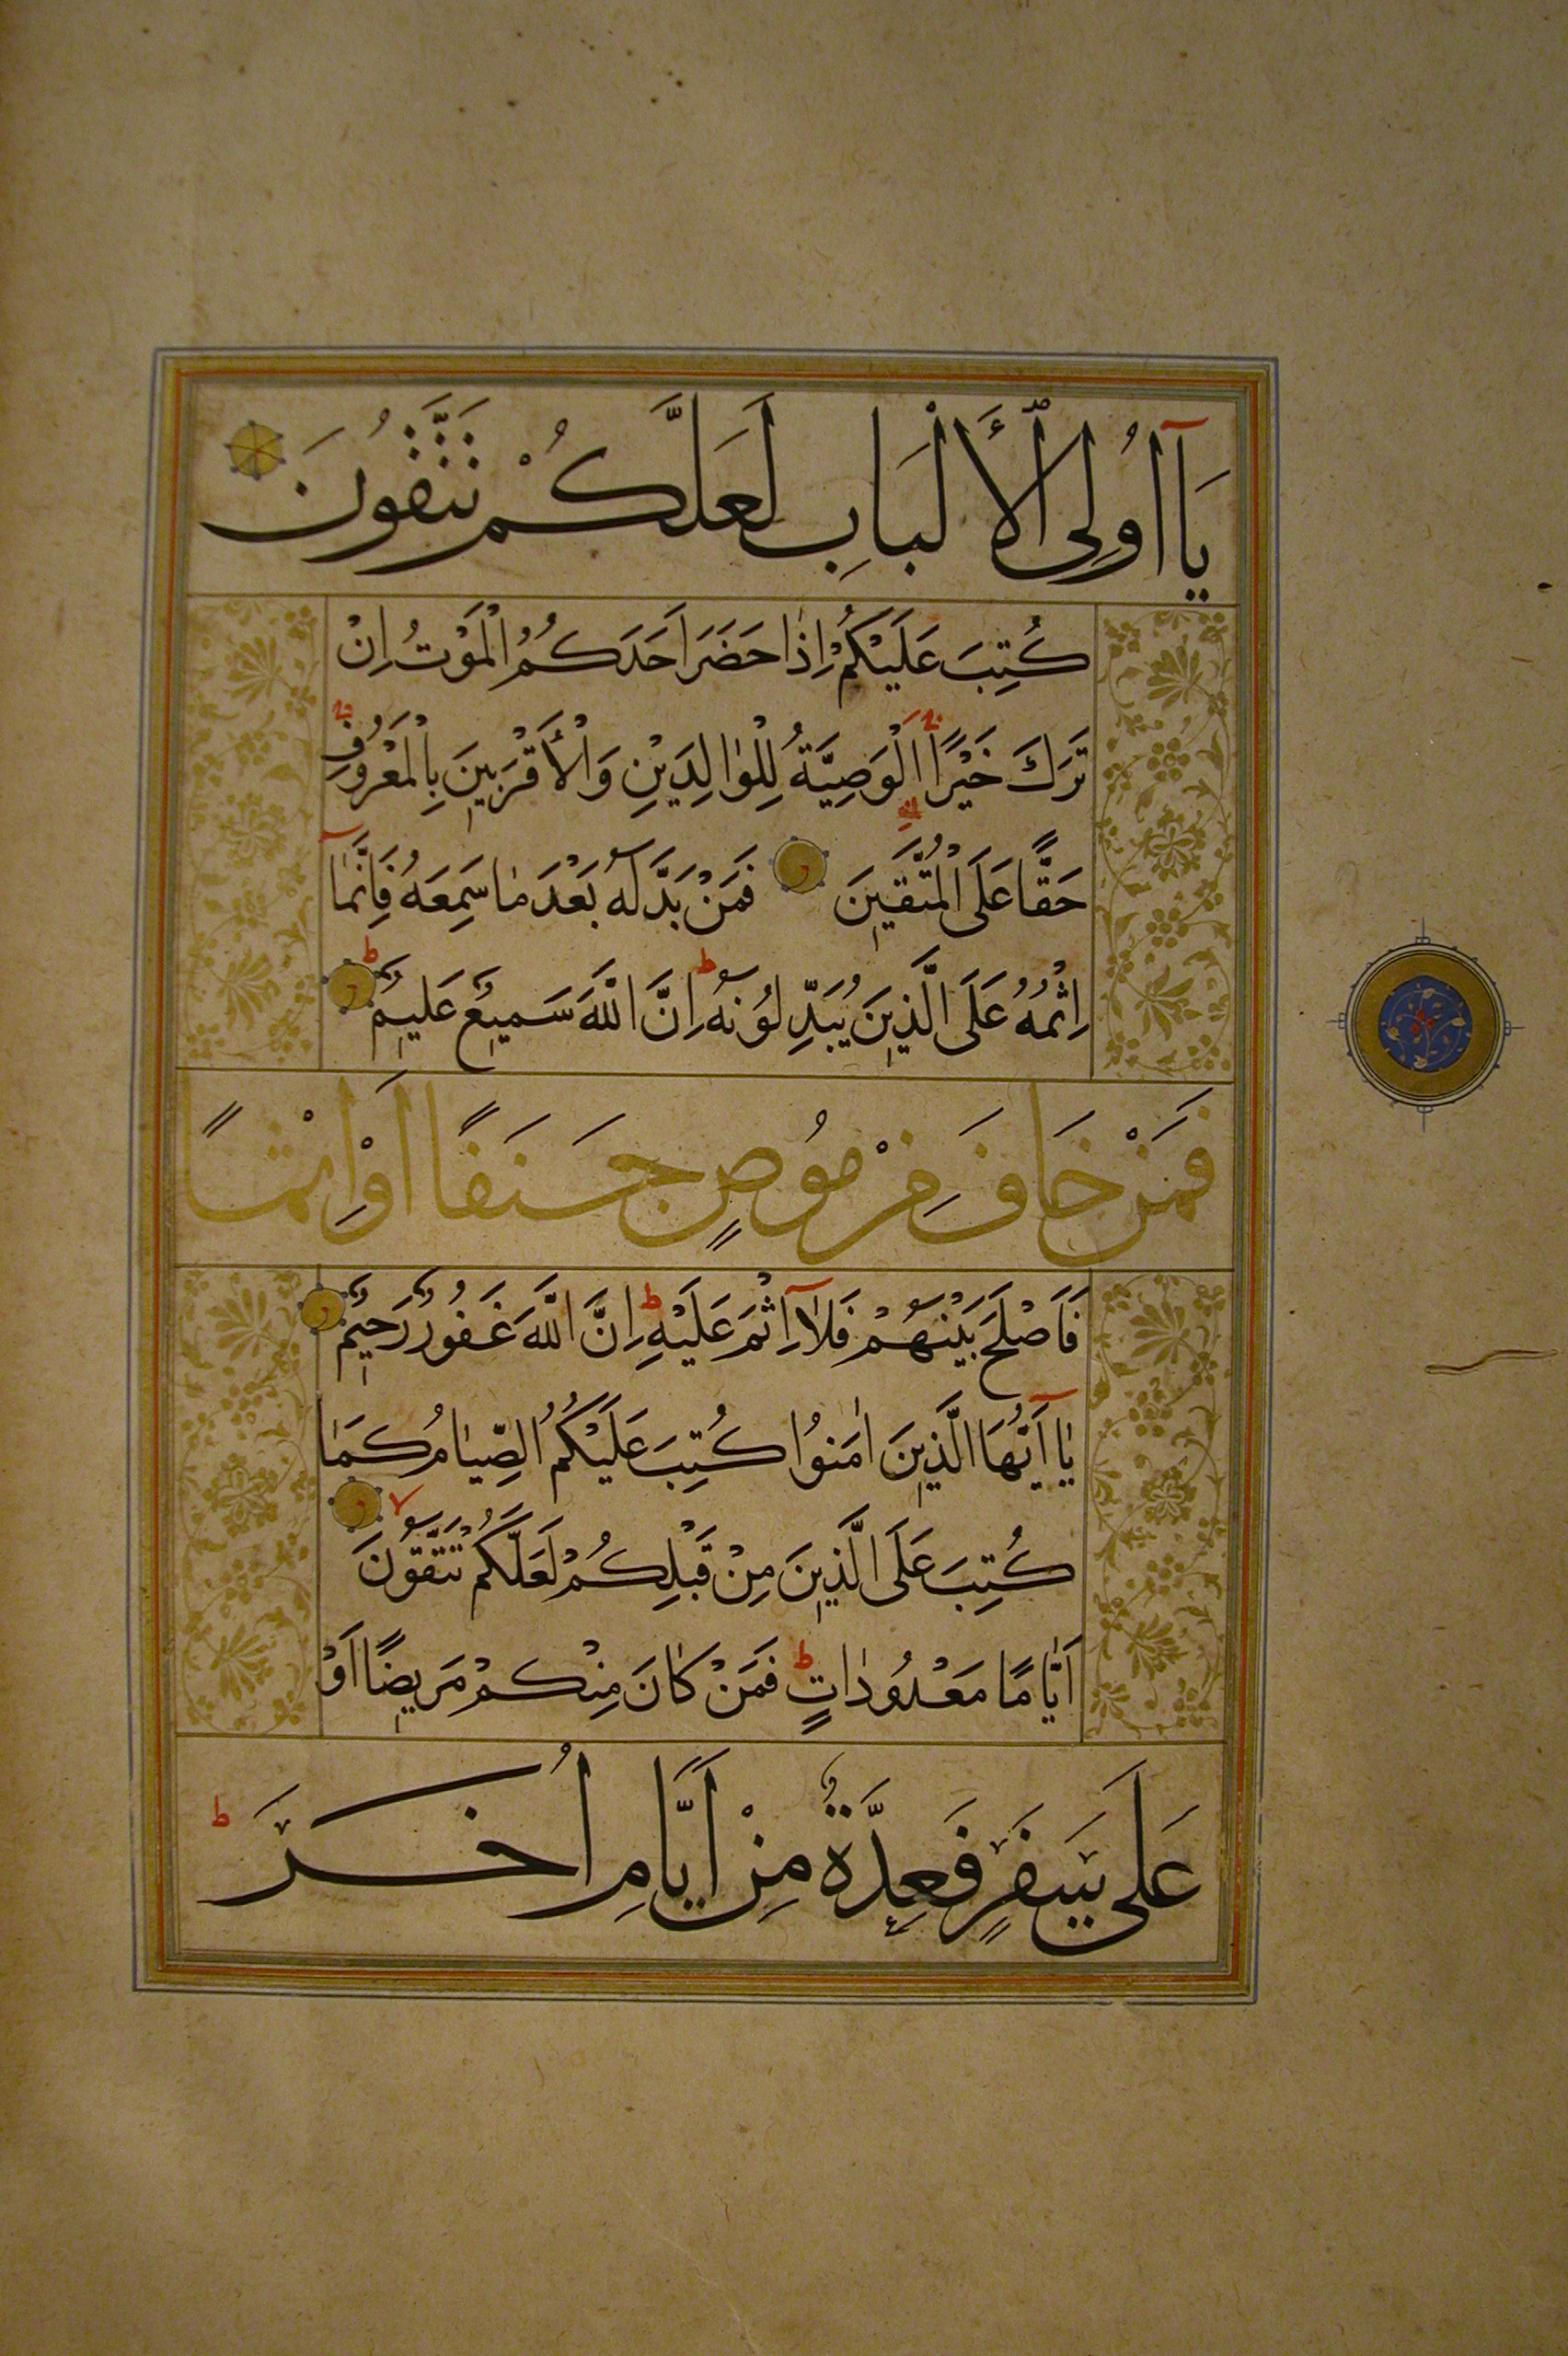 يَآ اُولِى ٱلْأَلْبَابِ لَعَلَّكُمْ تَتَّقُونَ
كُتِبَ عَلَيْكُمْ اِذٰا حَضَرَ اَحَدَكُمُ الْمَوْتُ اِنْ
تَرَكَ خَيْرًا الْوَصِيَّةُ لِلْوٰالِدَيْنِ وَالْأَقْرَبِينَ بِالْمَعْرُوفِ
حَقًّا عَلَى الْمُتَّقِينَ فَمَنْ بَدَّلَهُ بَعْدَ مٰا سَمِعَهُ فَاِنَّمٰآ
اِثْمُهُ عَلَى الَّذِينَ يُبَدِّلُونَهُ ط اِنَّ اللَّهَ سَمِيعٌ عَلِيمٌ ط
فَمَنْ خَافَ مِنْ مُوصٍ جَنَفًا اَوْ اِثْمًا
فَاَصْلَحَ بَيْنَهُمْ فَلَآ اِثْمَ عَلَيْهِ ط اِنَّ اللَّهَ غَفُورٌ رَحِيمٌ
يٰآ اَيُّهَا الَّذِينَ اٰمَنُوا كُتِبَ عَلَيْكُمُ الصِّيٰامُ كَمٰا
كُتِبَ عَلَى الَّذِينَ مِنْ قَبْلِكُمْ لَعَلَّكُمْ تَتَّقُونَ
اَيّٰامًا مَعْدُودٰاتٍ ط فَمَنْ كٰانَ مِنْكُمْ مَرِيضًا اَوْ
عَلَى سَفَرٍ فَعِدَّةٌ مِنْ اَيَّامٍ اُخَرَ ط